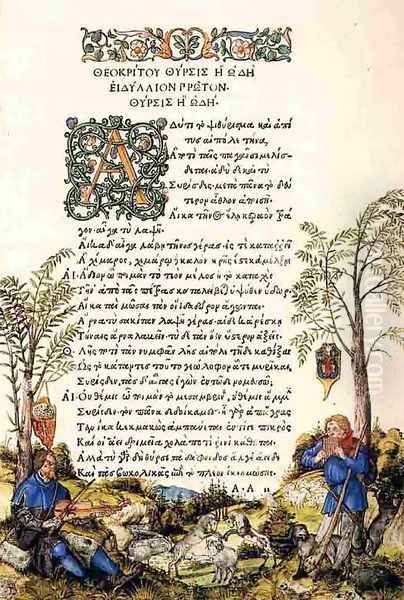 ΘΕΟΚΡΙΤΟΥ ΘΥΡΣΙΣ Η ΩΔΗ
ΕΙΔΥΛΛΙΟΝ ΠΡΩΤΟΝ.
ΘΥΡΣΙΣ Η ΩΔΗ.
ΑΔΥ τι τὸ ψιθύρισμα καὶ ἁ πί
τυς αἰπόλε τήνα,
Ἃ ποτὶ ταῖς παγαῖσι μελίσ-
δεται. ἁδὺ δὲ καὶ τὺ
Συρίσδες. μετὰ πᾶνα τὸ δεύ
τερον ἆθλον ἀποισῇ.
Αἴκα τῆνος ἕλῃ κεραὸν τρά
γον. αἶγα τὺ λαψῇ.
Αἴκα δ' αἶγα λάβῃ τῆνος γέρας. ἐς τὲ καταῤῥεῖ
Ἁ χίμαρος. χιμάρω δὲ καλὸν κρῆς ἔστε κ' ἀμέλξῃς
ΑΙ. Ἅδιον ὦ ποιμὰν τὸ τεὸν μέλος ἢ τὸ καταχὲς
Τῆν' ἀπὸ τᾶς πέτρας καταλείβεται ὑψόθεν ὕδωρ.
Αἴκα ταὶ μῶσαι τὰν οἴιδα δῶρον ἄγωνται.
Ἄρνα τὺ σακίταν λαψῇ γέρας. αἰ δέ κ' ἀρέσκῃ
Τήναις ἄρνα λαβεῖν. τὺ δὲ τὰν ὄϊν ὕστερον ἀξῇς.
Θ. Λῇς ποτὶ τᾶν νυμφᾶν λῇς αἰπόλε τῇδε καθίξας
Ὡς τὸ κάταντες τοῦτο γεώλοφον ᾇ τε μυρῖκαι.
Συρίσδεν. τὰς δ' αἶγας ἐγὼν ἐν τῷδε νομευσῶ.
ΑΙ. Οὐ θέμις ὦ ποιμὰν τὸ μεσαμβρινὸν. οὐ θέμις ἄμμιν
Συρίσδεν. τὸν πᾶνα δεδοίκαμες. ἦ γὰρ ἀπ' ἄγρας
Τανίκα κεκμακὼς ἀμπαύεται. ἐντί γε πικρὸς
Καί οἱ ἀεὶ δριμεῖα χολὰ ποτὶ ῥινὶ κάθηται.
Ἀλλὰ τὺ γὰρ δὴ θύρσι τὰ δάφνιδος ἄλγε' ἄειδες
Καὶ τᾶς βωκολικᾶς ἐπὶ τὸ πλέον ἵκεο μώσας.
Α.Α ii